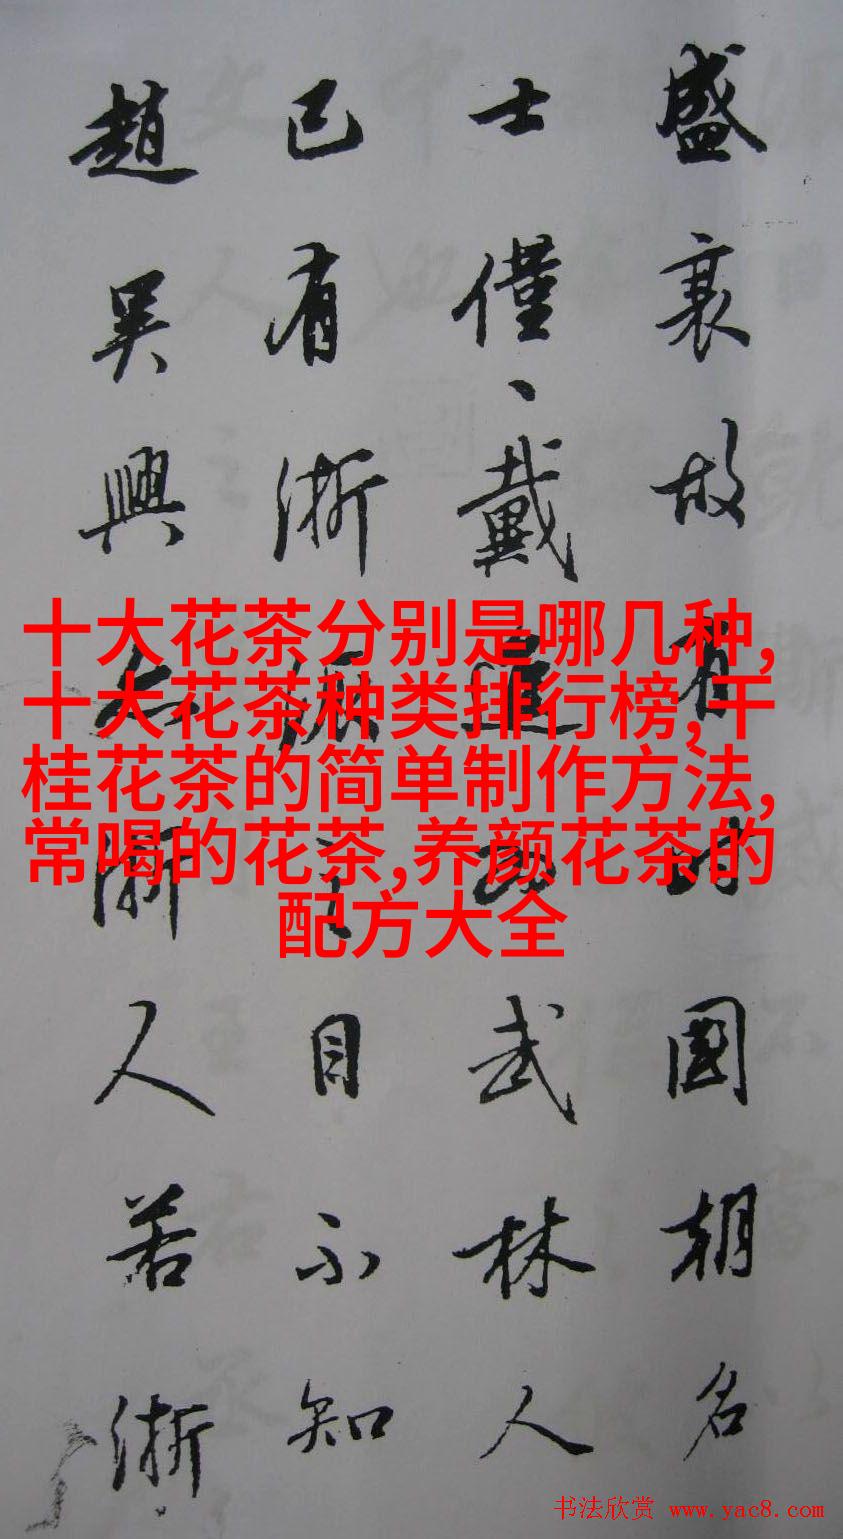 盛衰故有時國朝名
士僅、戴進為武林人
已有浙派之目不知
趙吳興亦浙人若浙
十大花茶分别是哪几种,
十大花茶种类排行榜,干
桂花茶的简单制作方法,
常喝的花茶,养颜花茶的
配方大全
书法欣赏 www.yac8.com